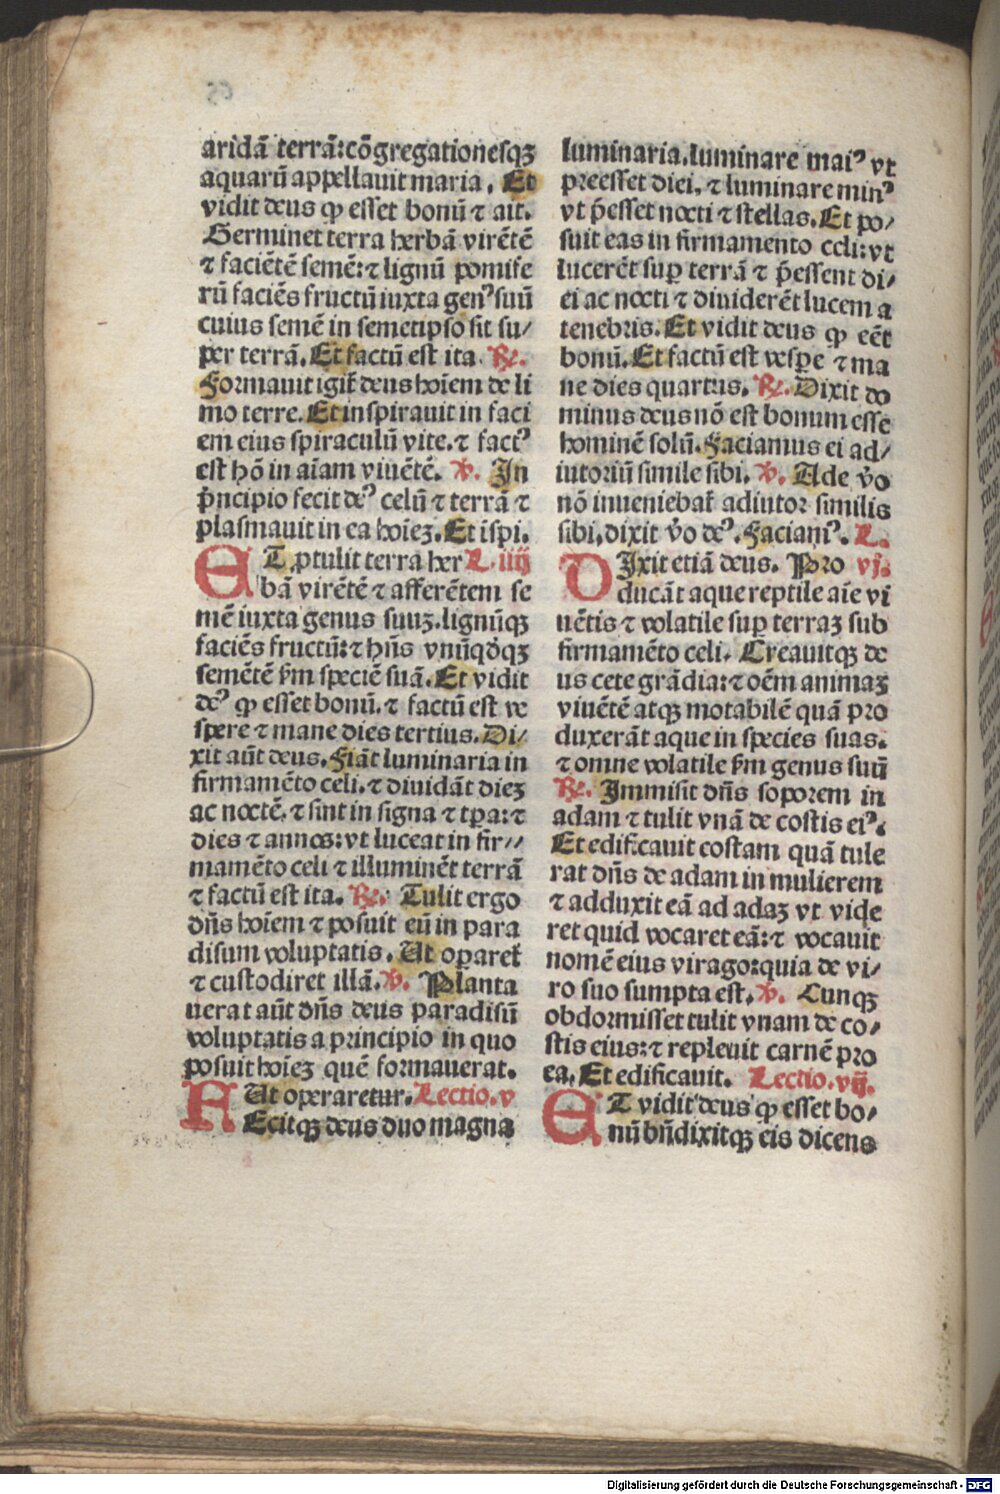 aridā terrā:cōgregationesqꝫ
aquarū appellauit maria. Et
vidit deus ꝙ esset bonū ⁊ ait.
Germinet terra herbā virētē
⁊ faciētē semē:⁊ lignū pomife
rū faciēs fructū iuxta genꝰ suū
cuius semē in semetipso sit su/
per terrā. Et factū est ita. ℟.
Formauit igit̄ deus hoīem de li
mo terre. Et inspirauit in faci
em eius spiraculū vite.⁊ factꝰ
est hō in aīam viuētē. ℣. In
p̄ncipio fecit deꝰ celū ⁊ terrā ⁊
plasmauit in ea hoieꝫ. Et īspi.
ET ꝓtulit terra her L.iiij
bā virētē ⁊ afferētem se
mē iuxta genus suuꝫ.lignūqꝫ
faciēs fructū:⁊ hn̄s vnūqd̄qꝫ
semētē ẜm speciē suā. Et vidit
deꝰ ꝙ esset bonū.⁊ factū est ve
spere ⁊ mane dies tertius. Di/
xit aūt deus. Fiāt luminaria in
firmamēto celi.⁊ diuidāt dieꝫ
ac noctē.⁊ sint in signa ⁊ tꝑa:⁊
dies ⁊ annos:vt luceat in fir//
mamēto celi ⁊ illuminēt terrā
⁊ factū est ita. ℟. Tulit ergo
dn̄s hoīem ⁊ posuit eū in para
disum voluptatis. Ut oꝑaret̄
⁊ custodiret illā. ℣. Planta
uerat aūt dn̄s deus paradisū
voluptatis a principio in quo
posuit hoieꝫ quē formauerat.
Ut operaretur. Lectio.v
FEcitqꝫ deus duo magna
luminaria.luminare maiꝰ vt
preesset diei.⁊ luminare minꝰ
vt p̄esset nocti ⁊ stellas. Et po/
suit eas in firmamento celi:vt
lucerēt suꝑ terrā ⁊ p̄essent di/
ei ac nocti ⁊ diuiderēt lucem a
tenebris. Et vidit deus ꝙ eēt
bonū. Et factū est vesꝑe ⁊ ma
ne dies quartus. ℟. Dixit do
minus deus nō est bonum esse
hominē solū. Faciamus ei ad/
iutoriū simile sibi. ℣. Ade v̄o
nō inueniebat̄ adiutor similis
sibi.dixit v̄o deꝰ. Faciamꝰ. L.
DIxit etiā deus. Pro vj.
ducāt aque reptile aīe vi
uētis ⁊ volatile suꝑ terraꝫ sub
firmamēto celi. Creauitqꝫ de
us cete grādia:⁊ oēm animaꝫ
viuētē atqꝫ motabilē quā pro
duxerāt aque in species suas.
⁊ omne volatile ẜm genus suū
℟. Immisit dn̄s soporem in
adam ⁊ tulit vnā de costis eiꝰ.
Et edificauit costam quā tule
rat dn̄s de adam in mulierem
⁊ adduxit eā ad adaꝫ vt vide
ret quid vocaret eā:⁊ vocauit
nomē eius virago:quia de vi/
ro suo sumpta est. ℣. Cunqꝫ
obdormisset tulit vnam de co/
stis eius:⁊ repleuit carnē pro
ea. Et edificauit. Lectio.vij.
ET vidit deus ꝙ esset bo/
nū bn̄dixitqꝫ eis dicens
Digitalisierung gefördert durch die Deutsche Forschungsgemeinschaft - DFG